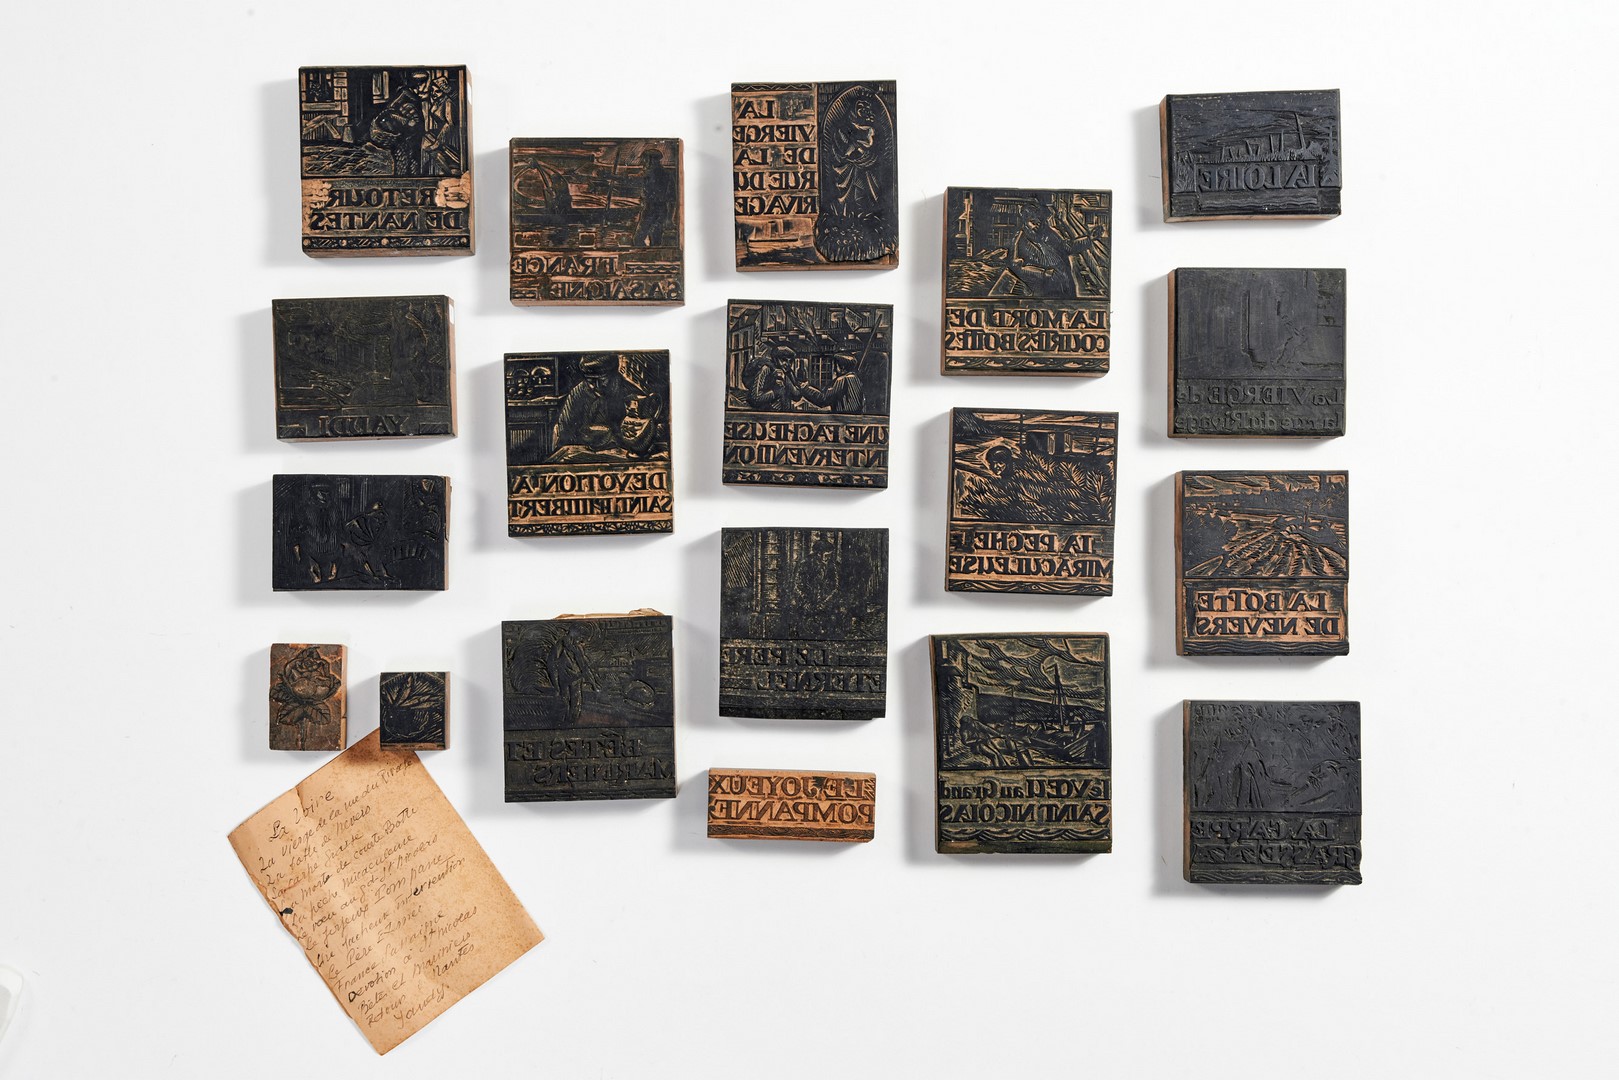 RETOUR
DE NANTES
FRANCE
LA
VIERGE
DE LA
RUE DU
RIVAGE
LA MORT DE
COURTES BOTTES
LA LOIRE
YAUDI
DEVOTION A
SAINT PHILIBERT
UNE FACHEUSE
INTERVENTION
LA PECHE
MIRACULEUSE
La VIERGE de
la rue du Rivage
LA BOTTE
DE NEVERS
BÊTES ET
MARINIERS
LE PERE
ETERNEL
LE JOYEUX
POMPANNE
le VŒU au Grand
SAINT NICOLAS
LA CARPE
La Loire
La Vierge de la rue du Rivage
La botte de Nevers
La Mort de courte Botte
La pêche miraculeuse
Le joyeux Pompanne
Une facheuse Intervention
Le Père
France
Devotion à St Nicolas
Bêtes et Mariniers
Retour Nantes